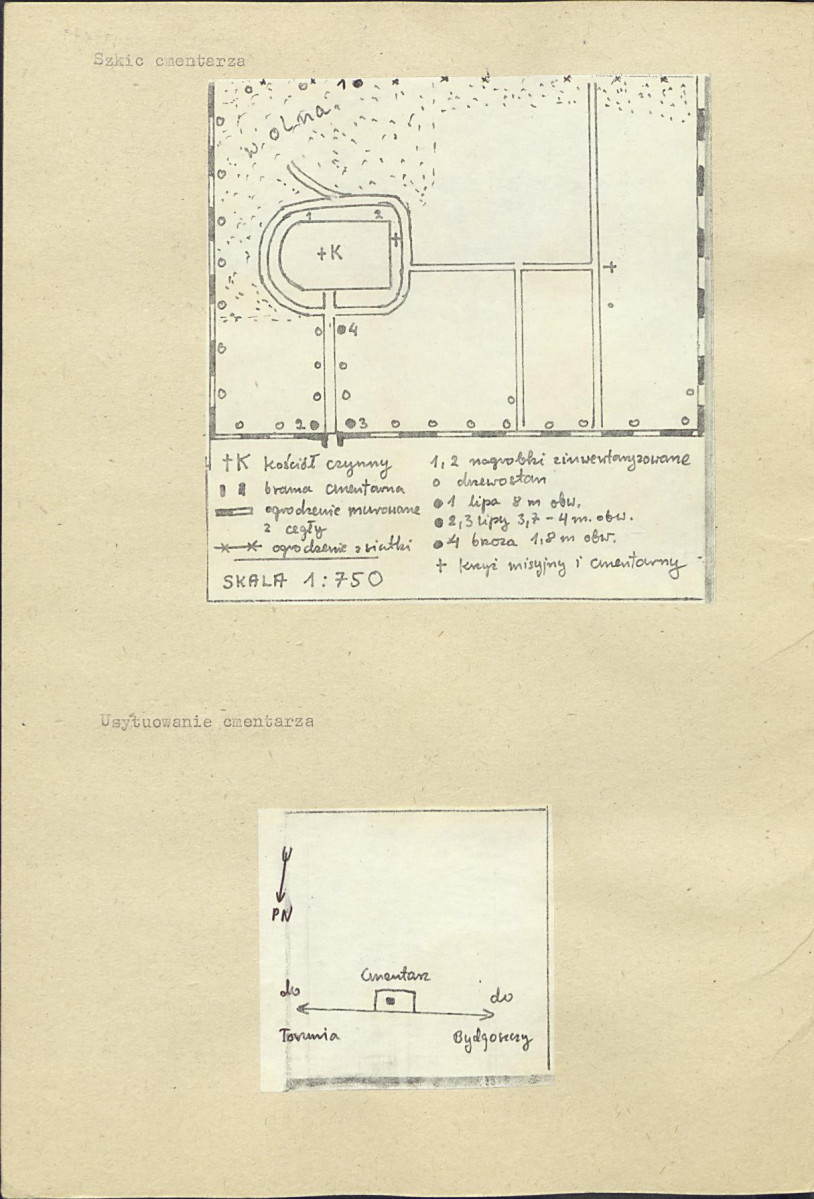 Szkic cmentarza
1
w olna
1 2
†K
4
2 3
†K kościół czynny
brama cmentarna
ogrodzenie murowane
z cegły
ogrodzenie z siatki
SKALA 1:750
1, 2 nagrobki zinwentaryzowane
drzewostan
1 lipa 8 m obw.
2,3 lipy 3,7 - 4 m. obw.
4 brzoza 1,8 m obw.
† krzyż misyjny i cmentarny
Usytuowanie cmentarza
PN
Cmentarz
do do
Torunia Bydgoszczy